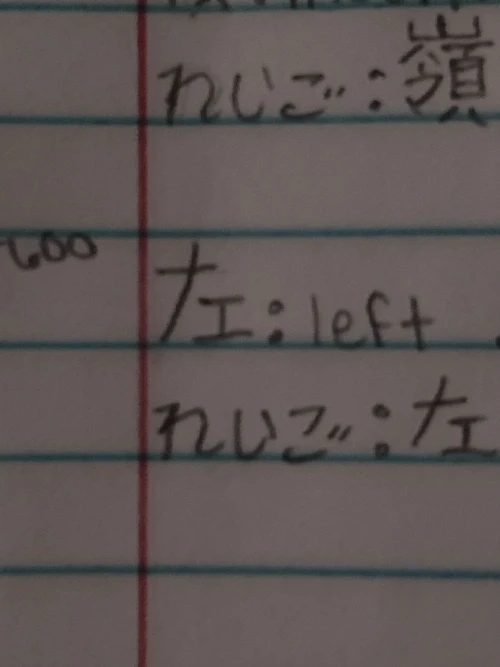 れいご:嶺
600
左:left
れいご:左